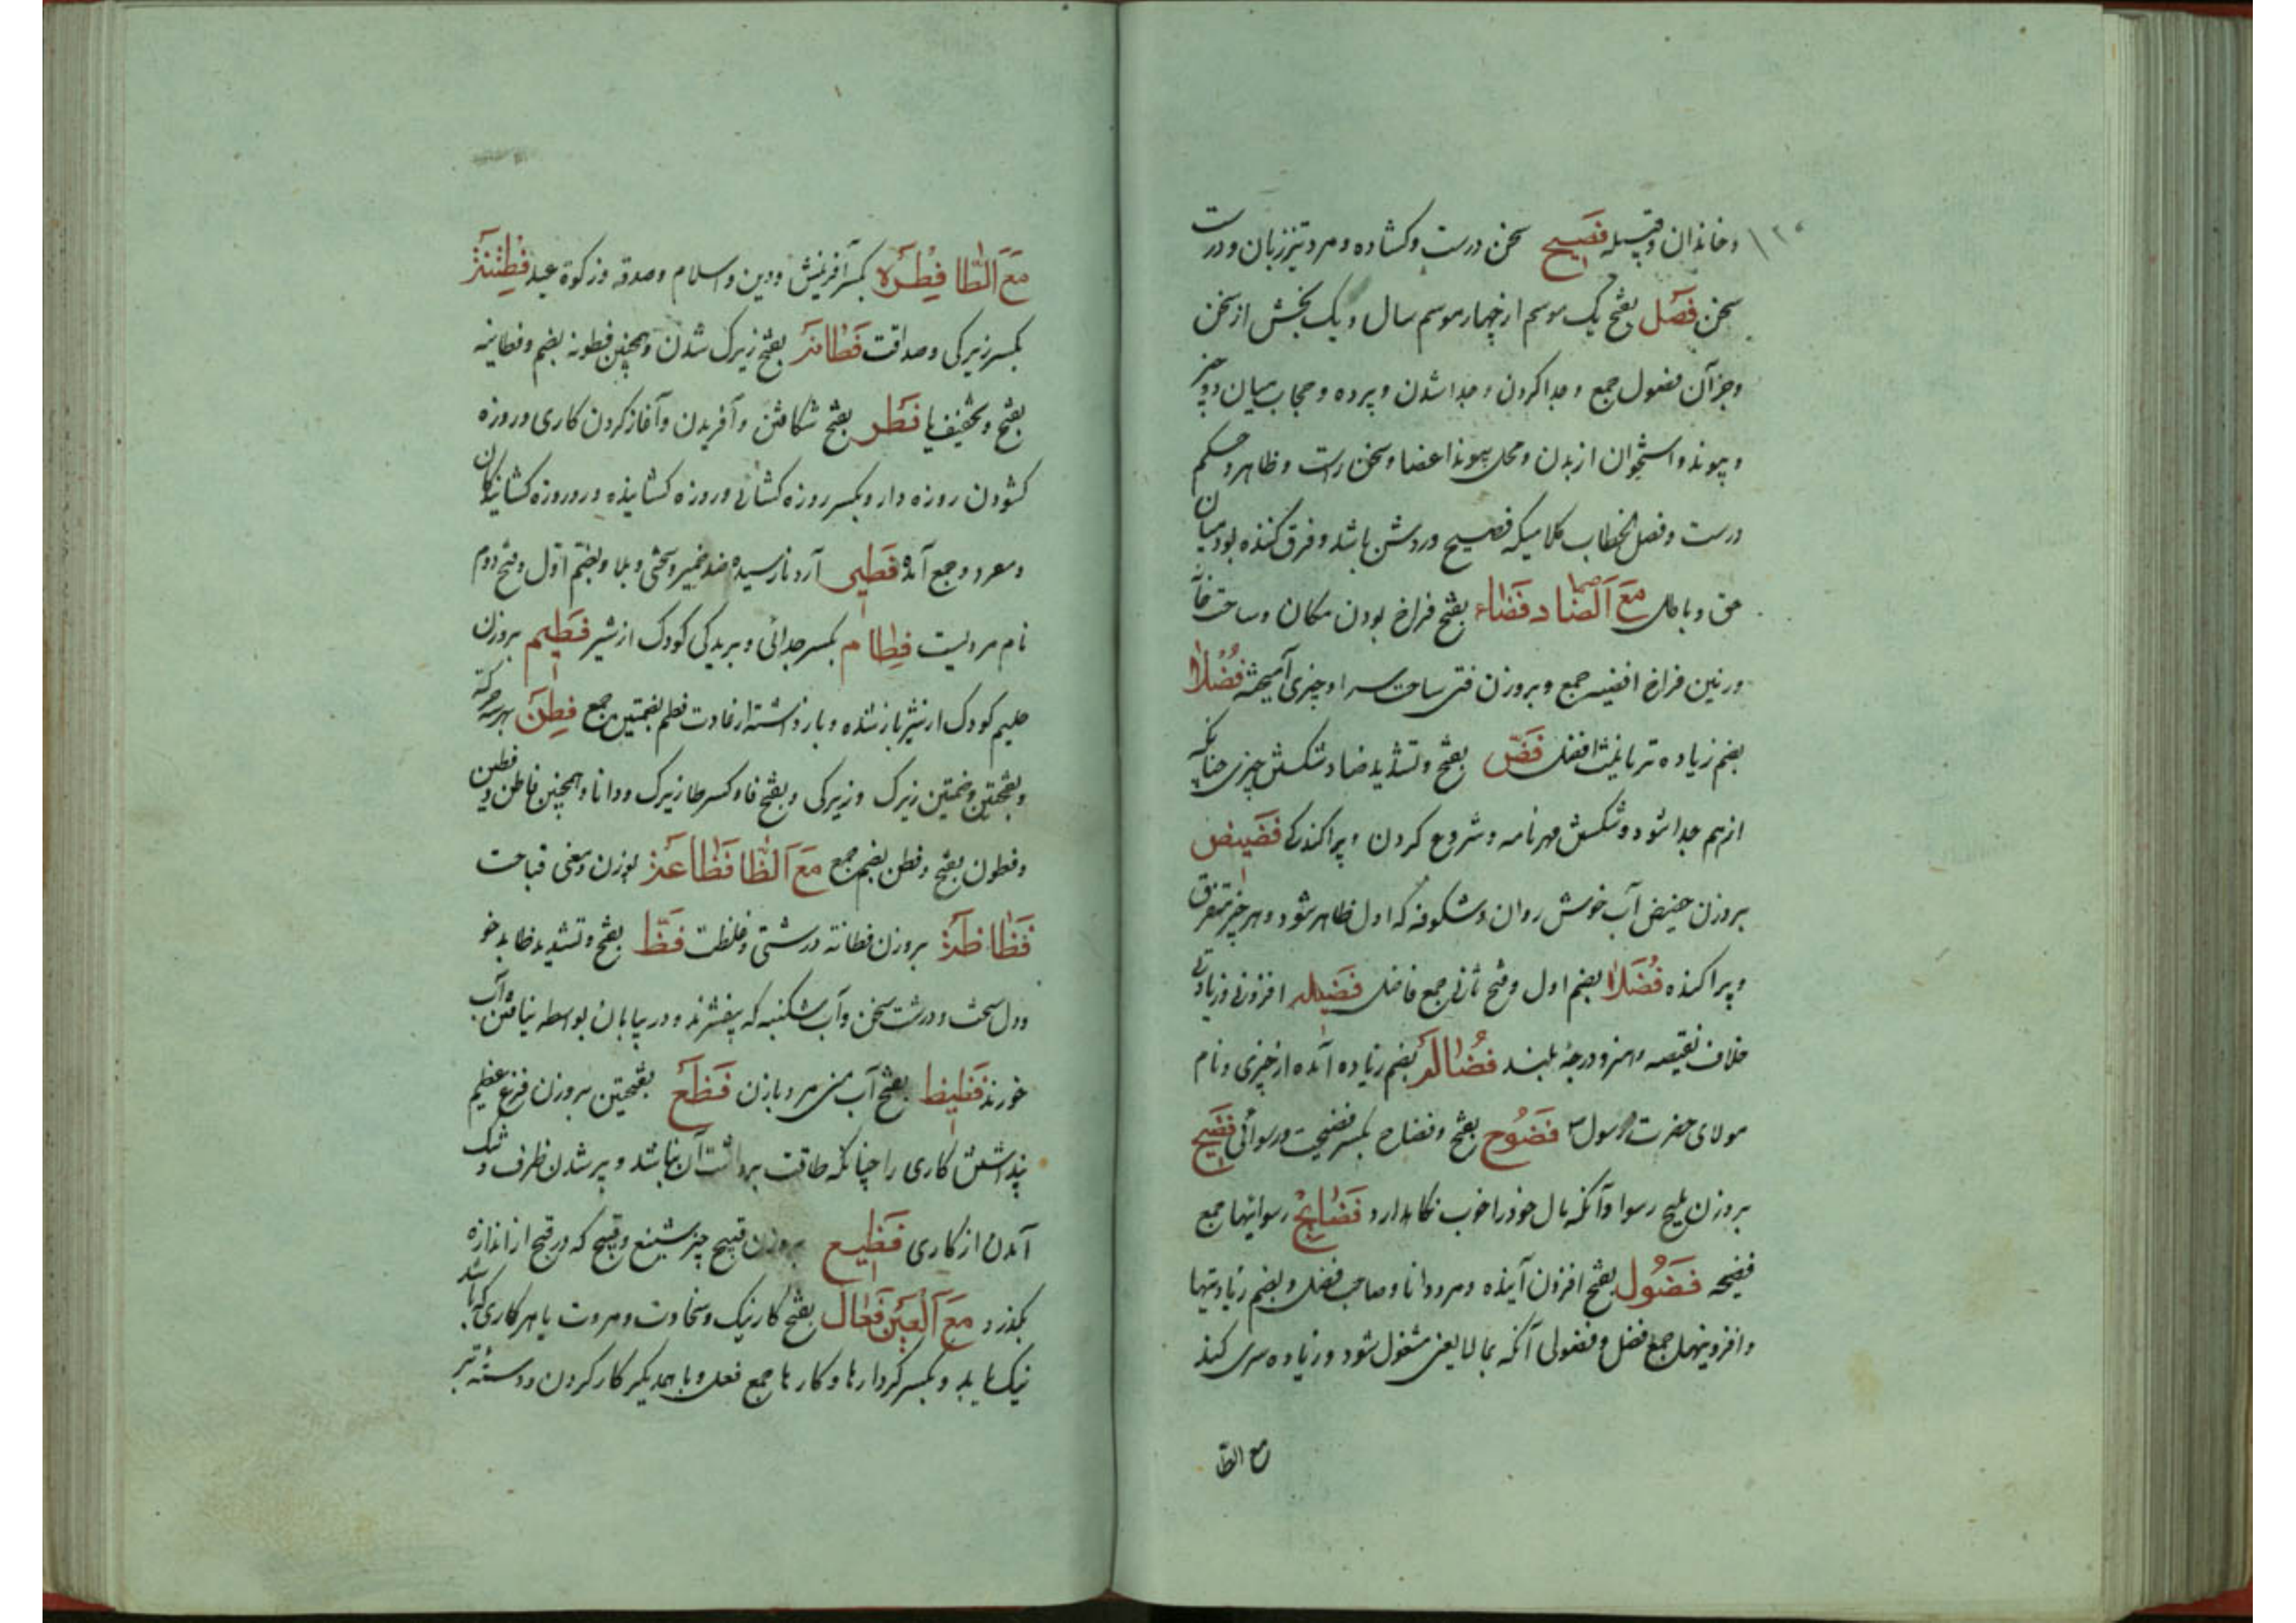 وخاندان وقبیله فَصیح سخن درست وکشاده ومرد تیززبان ودرست
سخن فَصل بفتح یک موسم از چهار موسم سال ویک بخش از سخن
وجزآن فصول جمع وجدا کردن وجدا شدن وپرده وحجاب میان دو چیز
وپیوند واستخوان از بدن ومحل پیوند اعضا وسخن راست وظاهر وحکم
درست وفصل الخطاب کلامیکه فصیح وروشن باشد وفرق کننده بود میان
حق وباطل مَعَ اَلضّاد فَضاء بفتح فراخ بودن مکان وساحت خانه
وزمین فراخ افضیه جمع وبروزن فتی ساحت سرا وچیزی آمیخته فُضلاٰ
بضم زیاده تر تانیث افضل فَضّ بفتح وتشدید ضاد شکستن چیزی چنانکه
ازهم جدا شود وشکستن مهر نامه وشروع کردن وپراکندکی فَضیض
بروزن حضیض آب خوش روان وشکوفه که اول ظاهر شود وهر چیز متفرق
وپراکنده فُضَلاٰ بضم اول وفتح ثانی جمع فاضل فَضیله افزونی وزیادتی
خلاف نقیصه وهنر ودرجهٔ بلند فُضالَه بضم زیاده آمده از چیزی ونام
مولای حضرت رسول فَضُوح بفتح وفضاح بکسر فضیحت ورسوائی فَضیح
بروزن ملیح رسوا وآنکه مال خود را خوب نکاه دارد فَضایِح رسوائیها جمع
فضیحه فَضُول بفتح افزون آینده ومرد دانا وصاحب فضل وبضم زیادتیها
وافزونیها جمع فضل وفضولی آنکه بمالایعنی مشغول شود وزیاده سری کند
مع الطّا
مَعَ اَلطّا فِطْرَه بکسر آفرینش ودین واسلام وصدقه وزکوة عید فِطْنَة
بکسر زیرکی وصداقت فَطانَه بفتح زیرک شدن وهمچنین فطونه بضم وفطانیه
بفتح وتخفیف یا فَطر بفتح شکافتن وآفریدن وآغاز کردن کاری وروزه
کشودن روزه دار وبکسر روزه کشائی وروزه کشاینده وروزه کشایندکان
ومفرد وجمع آمده فَطیر آرد نارسیده ضد خمیر وسختی وبلا وبضم اوّل وفتح دوم
نام مردیست فِطام بکسر جدائی وبریدکی کودک از شیر فَطیم بروزن
حلیم کودک از شیر باز شده وباز داشته از عادت فطم بضمتین جمع فِطن بهر سه حرکته
وبفتحتین وضمتین زیرک وزیرکی وبفتح فا وکسر طا زیرک ودانا وهمچنین فاطن وفطین
وفطون بفتح وفطن بضم جمع مَعَ اَلظّا فَظاعَة بوزن ومعنی قباحت
فَظاظَة بروزن فطانة درشتی وغلظت فَظّ بفتح وتشدید ظا بدخو
ودل سخت ودرشت سخن وآب شکنبه که بیفشرند ودر بیابان بواسطه نیافتن آب
خورند فَظیظ بفتح آب منی مرد یا زن فَظَع بفتحتین بروزن فزع عظیم
پنداشتن کاری را چنانکه طاقت برداشت آن نباشد وپر شدن ظرف وتنک
آمدن از کاری فَظیع بروزن قبیح چیز شنیع وقبیح که در قبح از اندازه
بکذرد مَعَ اَلعَیْن فَعال بفتح کار نیک وسخاوت ومروت یا هر کاری که باشد
نیک یا بد وبکسر کردارها وکارها جمع فعل وبا همدیکر کار کردن ودستهٔ تبر